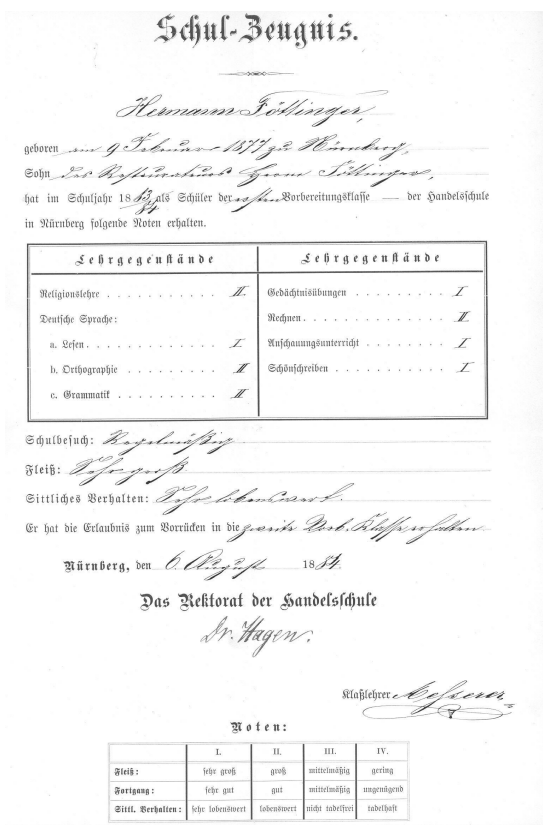 Schul-Zeugnis.
Hermann Föttinger,
geboren am 9 Februar 1877 zu Nürnberg,
Sohn des Restaurateurs Herrn Föttinger,
hat im Schuljahr 1883/84 als Schüler der ersten Vorbereitungsklasse — der Handelsschule
in Nürnberg folgende Noten erhalten.
Lehrgegenstände Lehrgegenstände
Religionslehre . . . . . . . . . . . II Gedächtnisübungen . . . . . . . . . I
Deutsche Sprache: Rechnen . . . . . . . . . . . . . . II
a. Lesen . . . . . . . . . . . . . I Anschauungsunterricht . . . . . . . I
b. Orthographie . . . . . . . . . II Schönschreiben . . . . . . . . . . I
c. Grammatik . . . . . . . . . . II
Schulbesuch: Regelmäßig
Fleiß: Sehr groß
Sittliches Verhalten: Sehr lobenswert.
Er hat die Erlaubnis zum Vorrücken in die zweite Vorb. Klasse erhalten
Nürnberg, den 6. August 1884.
Das Rektorat der Handelsschule
Dr. Hagen.
Klaßlehrer Messerer
Noten:
I. II. III. IV.
Fleiß: sehr groß groß mittelmäßig gering
Fortgang: sehr gut gut mittelmäßig ungenügend
Sittl. Verhalten: sehr lobenswert lobenswert nicht tadelfrei tadelhaft